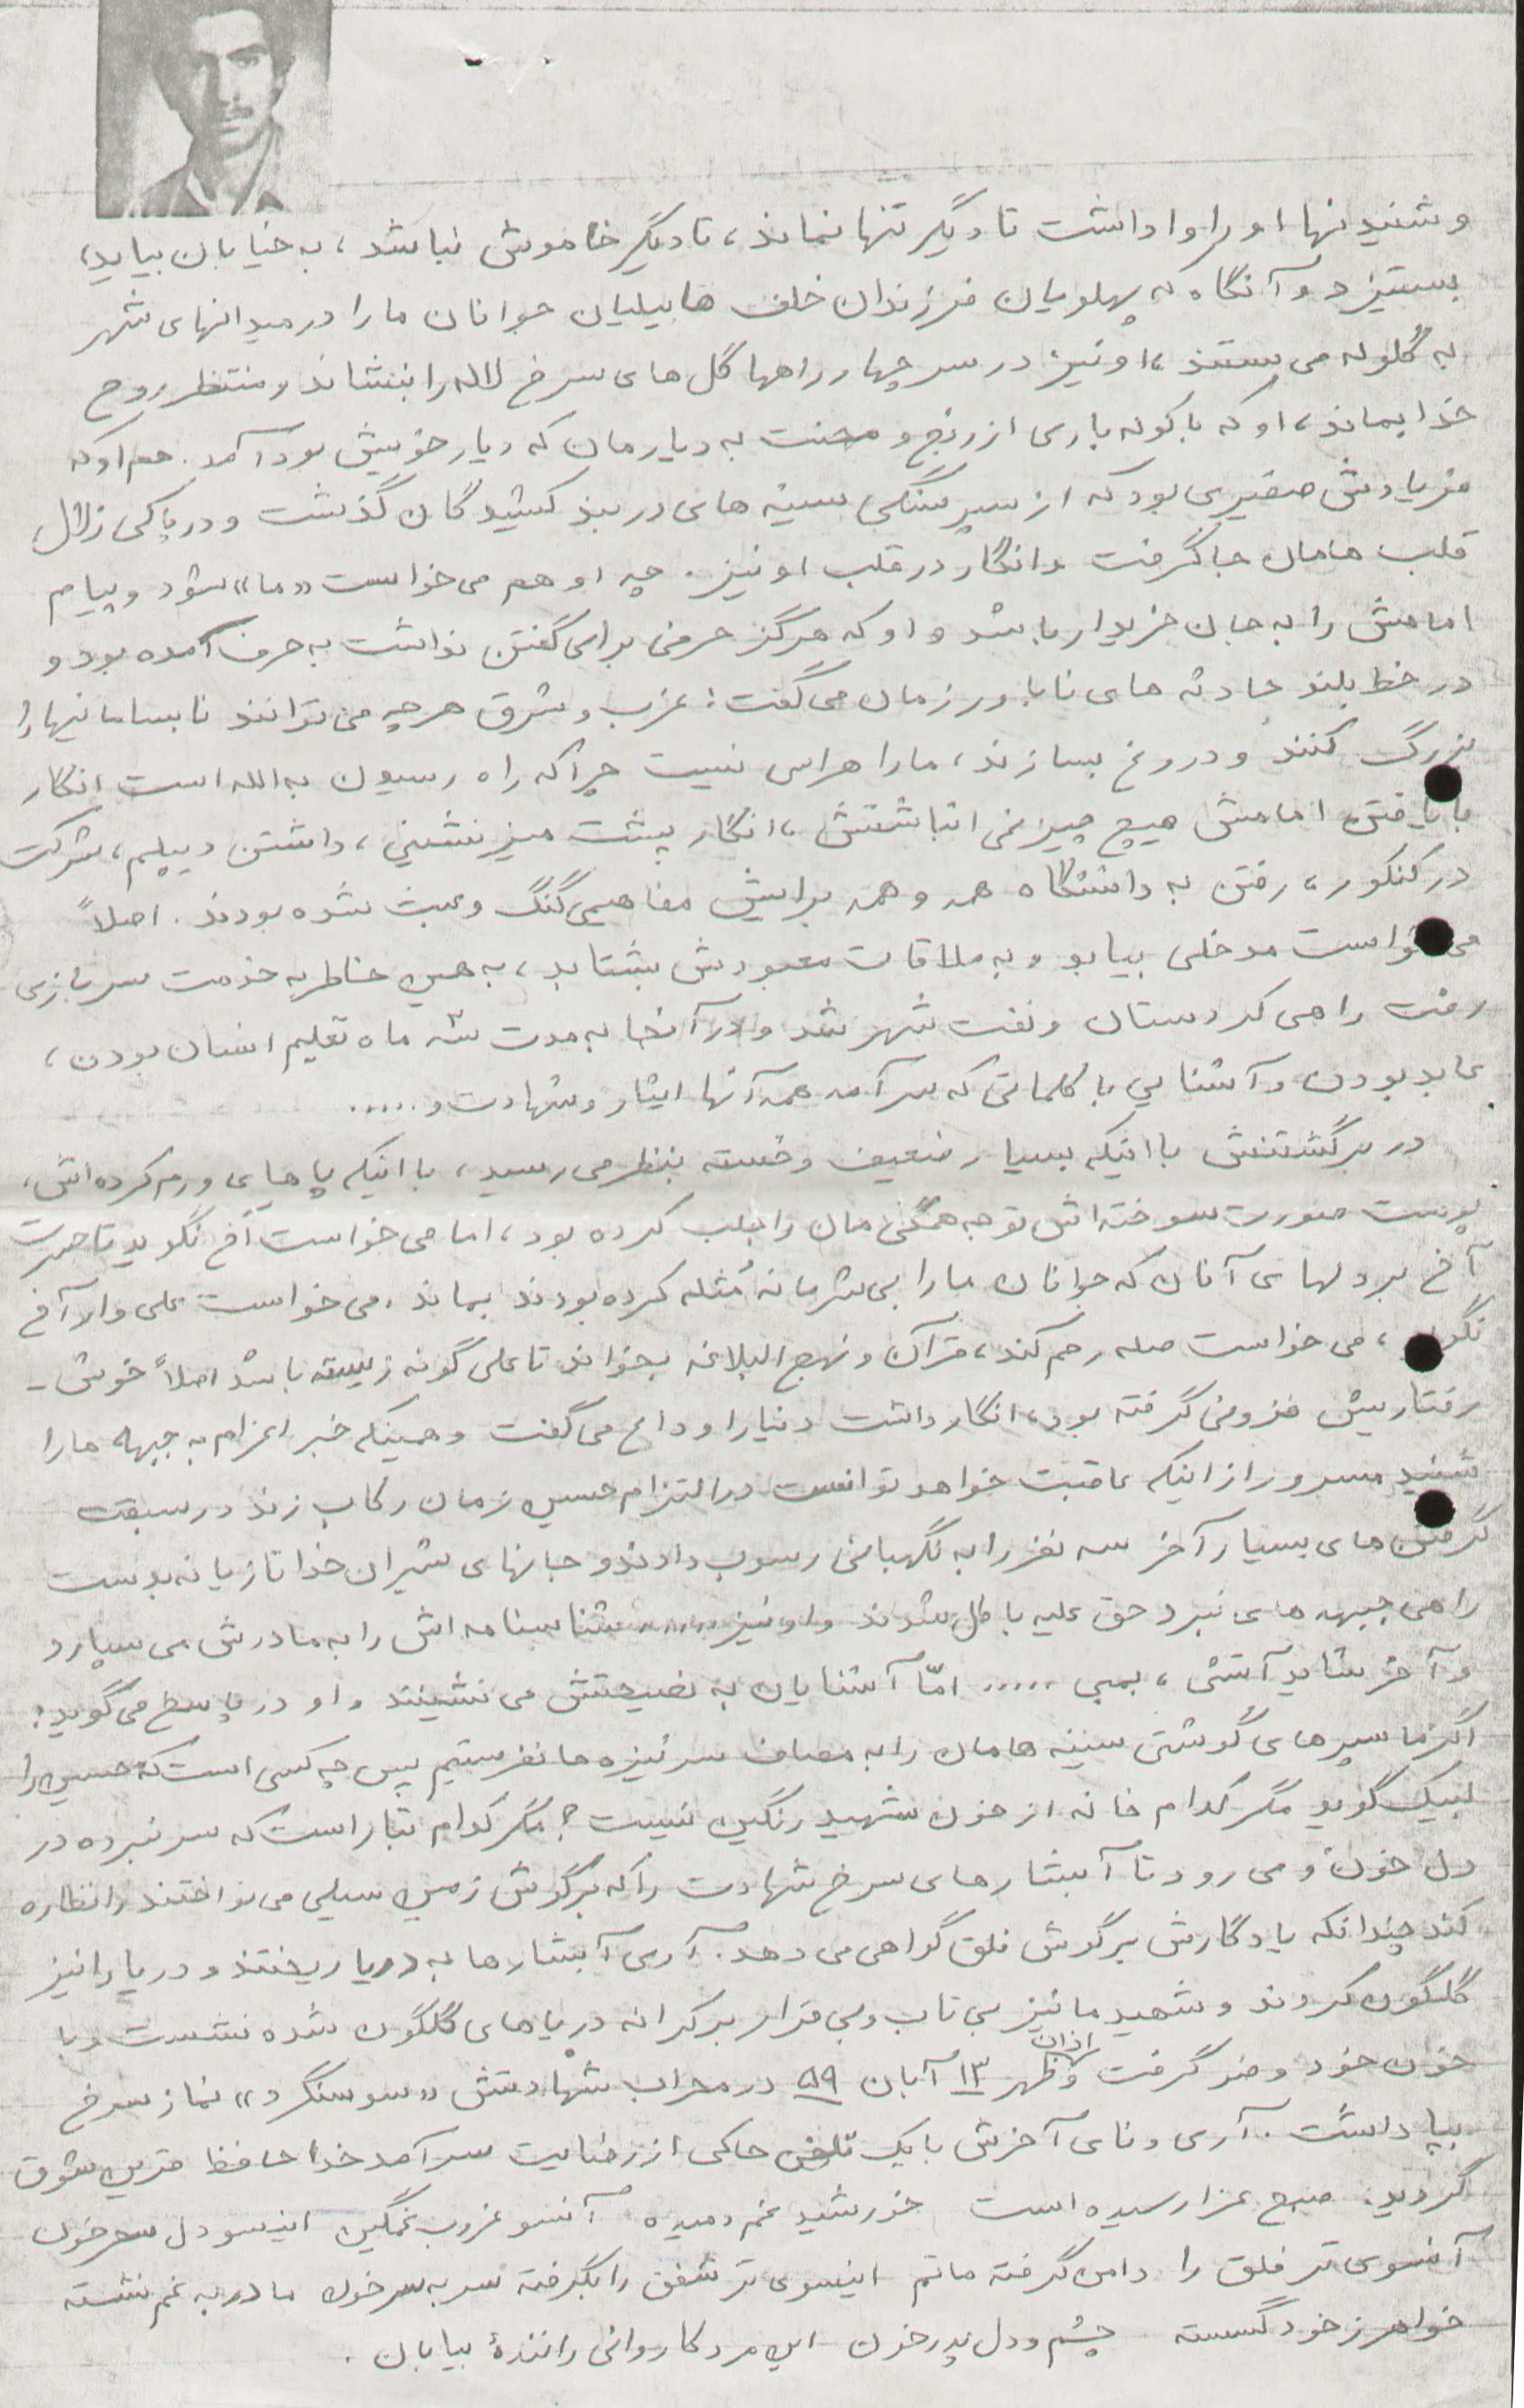 و شنیدنها او را واداشت تا دیگر تنها نماند، تا دیگر خاموش نباشد، به خیابان بیاید،
بستیزد و آنگاه که پهلویان فرزندان خلف هابیلیان جوانان ما را در میدانهای شهر
به گلوله می بستند، او نیز در سر چهار راهها گل های سرخ لاله را بنشاند و منتظر روح
خدا بماند، او که با کوله باری از رنج و محنت به دیارمان که دیار خویش بود آمد. هم او که
فریادش صفیری بود که از سپر سنگی سینه های در بند کشیدگان گذشت و در پاکی زلال
قلب هامان جا گرفت و انگار در قلب او نیز. چه او هم می خواست «ما» شود و پیام
امامش را به جان خریدار باشد و او که هرگز حرفی برای گفتن نداشت به حرف آمده بود و
در خط بلند حادثه های ناباور زمان می گفت: غرب و شرق هرچه می توانند نابسامانیها را
بزرگ کنند و دروغ بسازند، ما را هراسی نیست چرا که راه رسیدن به الله است انگار
با یافتن امامش هیچ چیز نمی انباشتش، انگار پشت میز نشینی، داشتن دیپلم، شرکت
در کنکور، رفتن به دانشگاه همه و همه برایش مفاهیمی گنگ و عبث شده بودند. اصلاً
می خواست مدخلی بیابد و به ملاقات معبودش بشتابد، به همین خاطر به خدمت سربازی
رفت راهی کردستان و نفت شهر شد و در آنجا به مدت سه ماه تعلیم انسان بودن،
عابد بودن و آشنایی با کلماتی که سرآمد همه آنها ایثار و شهادت و .....
در برگشتنش با اینکه بسیار ضعیف و خسته بنظر می رسید، با اینکه پاهای ورم کرده اش،
پوست صورت سوخته اش توجه همگی مان را جلب کرده بود، اما می خواست آخ نگوید تا حسرت
آخ بر دلهای آنان که جوانان ما را بی شرمانه مُثله کرده بودند بماند. می خواست علی وار آخ
نگوید، می خواست صله رحم کند، قرآن و نهج البلاغه بخواند تا علی گونه زیسته باشد اصلاً خوش -
رفتاریش فزونی گرفته بود، انگار داشت دنیا را وداع می گفت و همینکه خبر اعزام به جبهه ها را
شنید مسرور از اینکه عاقبت خواهد توانست در التزام حسین زمان رکاب زند در سبقت
گرفتن های بسیار آخر سه نفر را به نگهبانی رسوب دادند و جانهای شیران خدا تازیانه بدست
راهی جبهه های نبرد حق علیه باطل شدند و او نیز ...... شناسنامه اش را به مادرش می سپارد
و آخر شاید آتشی، بمبی ..... امّا آشنایان به نصیحتش می نشینند و او در پاسخ می گوید:
اگر ما سپرهای گوشتی سینه هامان را به مصاف سر نیزه ها نفرستیم پس چه کسی است که حسین را
لبیک گوید مگر کدام خانه از خون شهید رنگین نیست؟ مگر کدام تبار است که سر نبرده در
دل خون و می رود تا آبشارهای سرخ شهادت را که بر گوش زمین سیلی می نواختند را نظاره
کند چندانکه یادگارش بر گوش فلق گواهی می دهد. آری آبشارها به دریا ریختند و دریا را نیز
گلگون کردند و شهید ما نیز بی تاب و بی قرار بر کرانه دریاهای گلگون شده نشست و با
خون خود وضو گرفت و اذان ظهر ۱۳ آبان ۵۹ در محراب شهادتش «سوسنگرد» نماز سرخ
بپا داشت. آری و نای آخرش با یک تلفن حاکی از رضایت سرآمد خداحافظ قرین شوق
گردید: صبح عزا رسیده است خورشید غم دمیده آنسو غروب غمگین اینسو دل سحر خون
آنسوی تر فلق را دامن گرفته ماتم اینسوی تر شفق را بگرفته سر به سر خون مادر به غم نشسته
خواهر ز خود گسسته چشم و دل پدر خون این مرد کاروانی رانندهٔ بیابان.